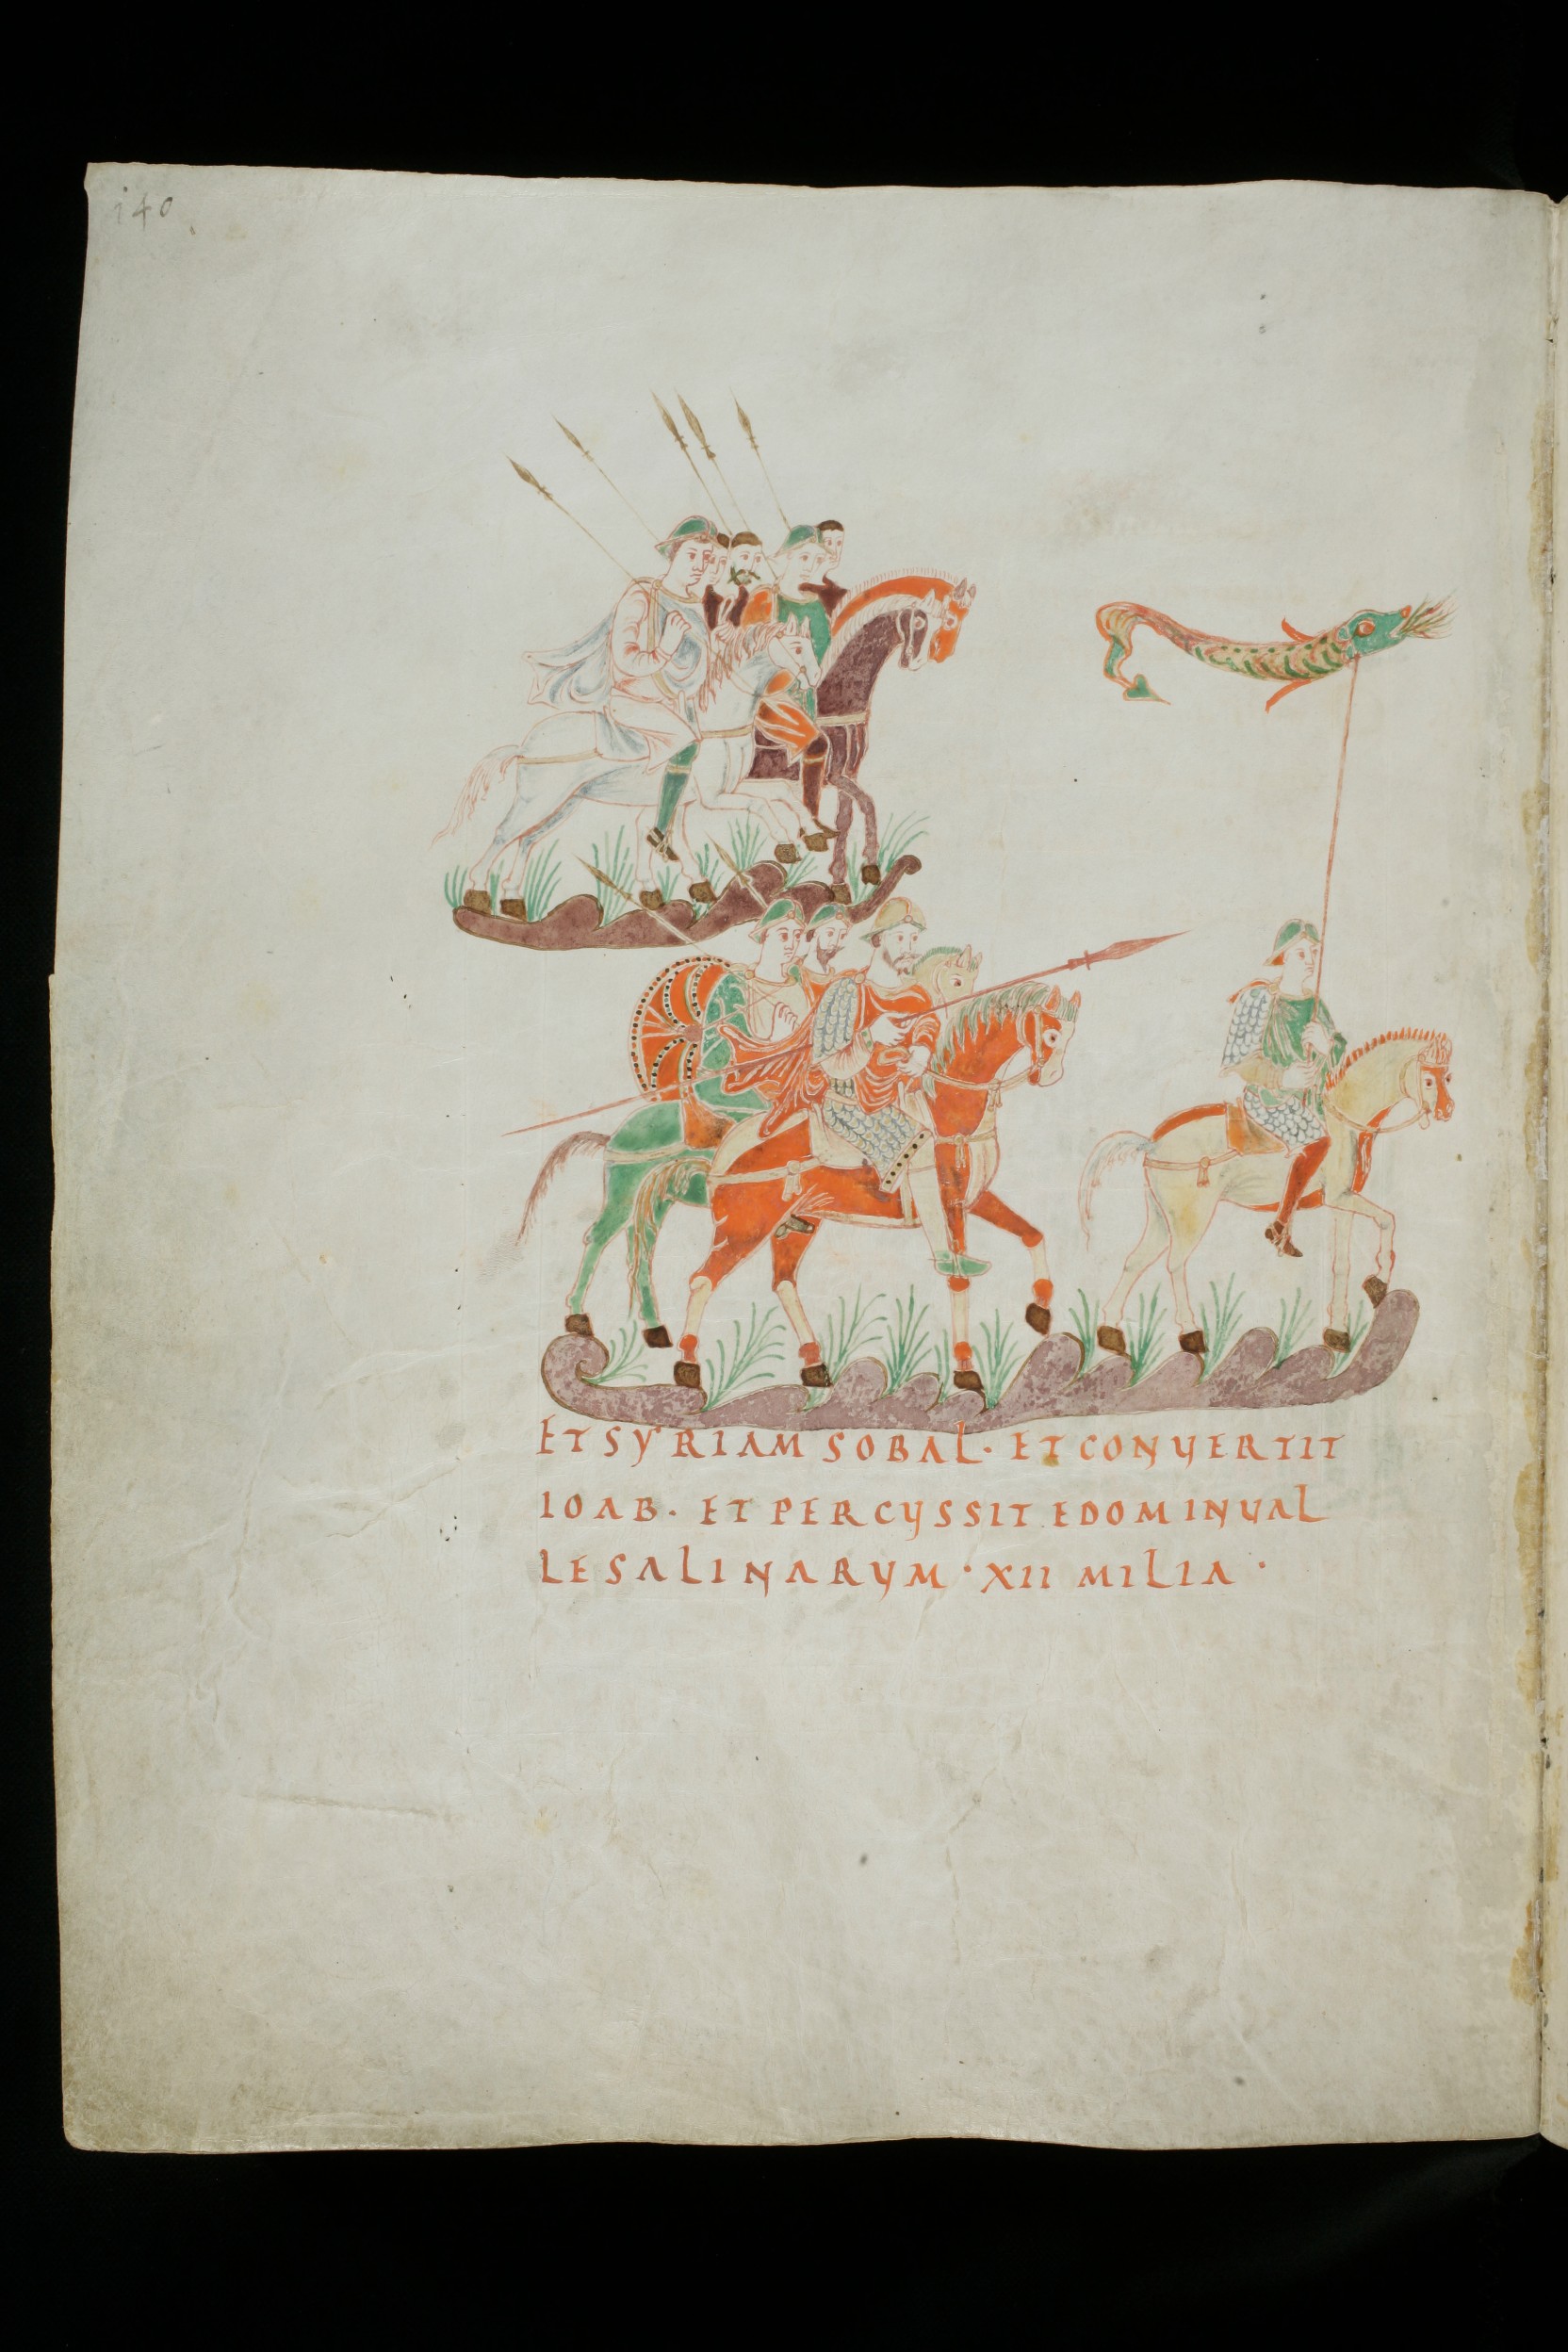 140
ET SYRIAM SOBAL · ET CONUERTIT
IOAB · ET PERCUSSIT EDOM IN UAL
LE SALINARUM · XII MILIA ·